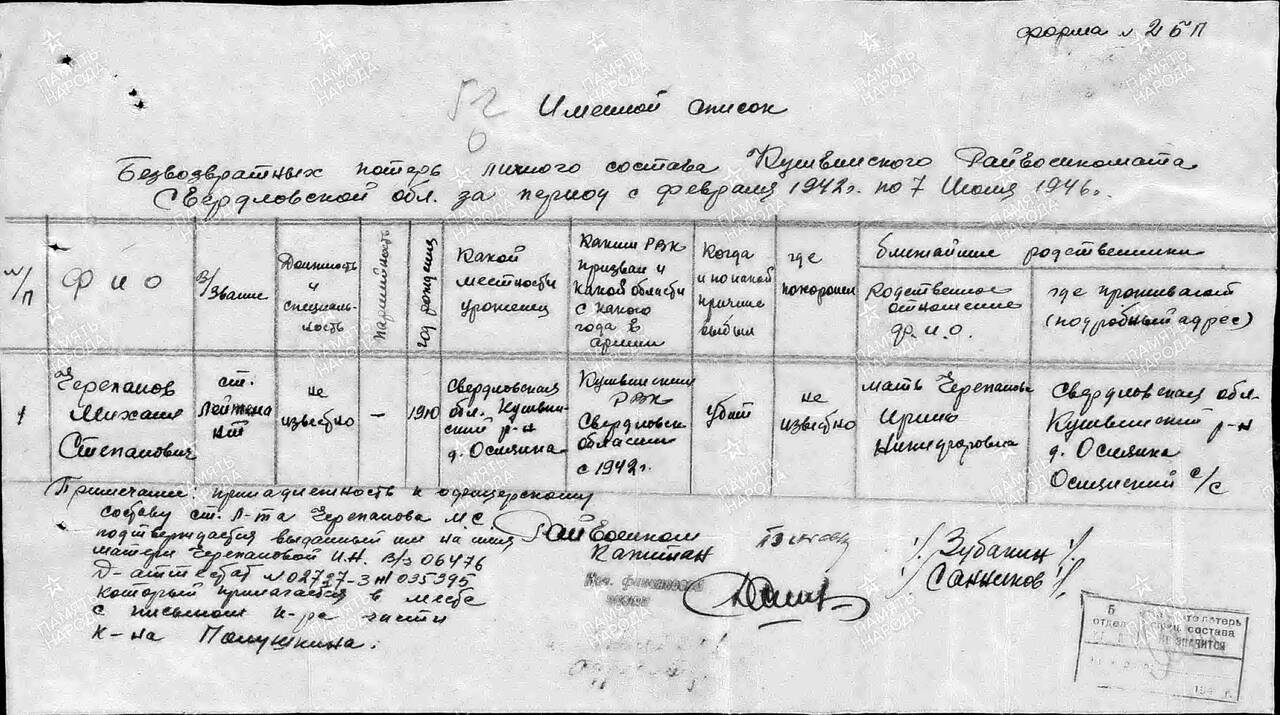 форма № 2 БП
Именной список
Безвозвратных потерь личного состава Кушвинского Райвоенкомата
Свердловской обл. за период с февраля 1942г. по 7 Июня 1946г.
№/п
Ф И О
В/Звание
Должность и специаль-ность
партийность
год рождения
Какой местности уроженец
Каким РВК призван и какой области с какого года в армии
Когда и по какой причине выбыл
где похоронен
ближайшие родственники
Родственное отношение ф.и.о.
где проживают (подробный адрес)
1
Черепанов Михаил Степанович
ст. лейтенант
не известно
—
1910
Свердловская обл. Кушвинский р-н д. Осиянка
Кушвинским РВК Свердловск области с 1942г.
убит
не известно
мать Черепанова Ирина
Свердловская обл. Кушвинский р-н д. Осиянка
с/с
Примечание: принадлежность к офицерскому
составу ст. л-та Черепанова М.С.
подтверждается выданный им на имя
матери Черепановой И.Н. В/з 06476
Д-аттестат № 02727-3
который прилагается в месте
с письмом к-ра части
к-на Полушкина.
Райвоенком
капитан
/Зубакин/
Нач. финансовой
части
/Санников/
потерь
отдел
состава
ЗНАЧИТСЯ
194 г.
ПАМЯТЬ НАРОДА